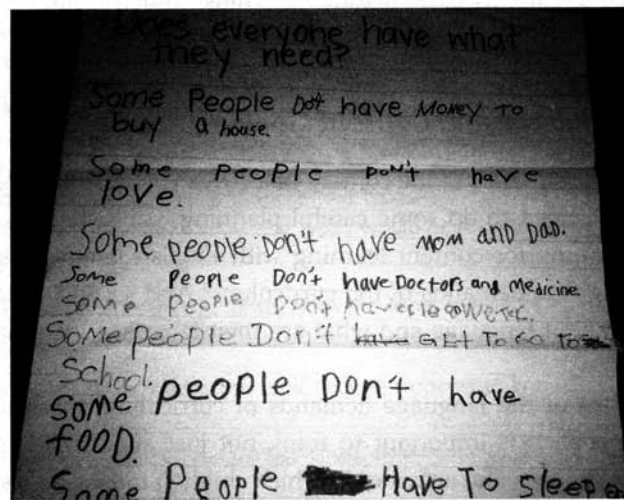 Does everyone have what
they need?
Some People Dot have MoNey To
buy a house.
Some PeoPle DoN't haVe
love.
Some people Don't have mom and DaD.
Some People Don't have Doctors and medicine
Some People Don't have
Some people Don't have GET To Go To
School.
Some people Don't have
fooD.
Some People Have To sleep